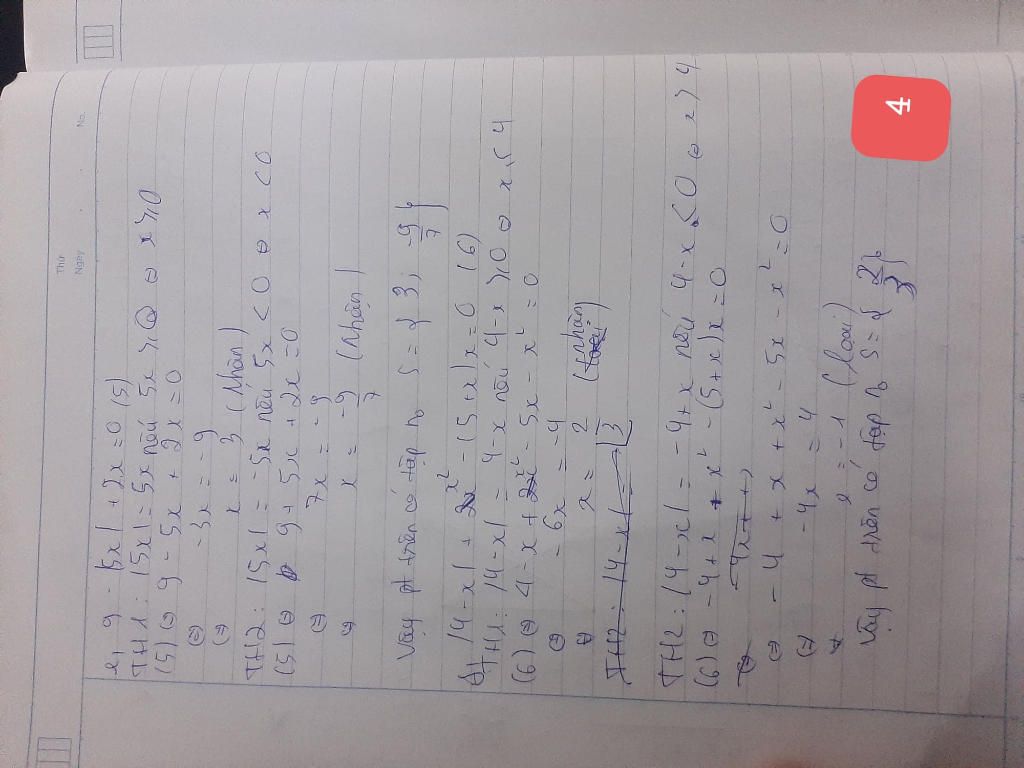 Thứ
Ngày
No.
e, 9 - |5x| + 2x = 0 (5)
TH1: |5x| = 5x nếu 5x ≥ 0 ⇔ x ≥ 0
(5) ⇔ 9 - 5x + 2x = 0
⇔ -3x = -9
⇔ x = 3 (nhận)
TH2: |5x| = -5x nếu 5x < 0 ⇔ x < 0
(5) ⇔ 9 + 5x + 2x = 0
⇔ 7x = -9
⇔ x = -9/7 (Nhận)
Vậy pt trên có tập n₀ S = { 3; -9/7 }
f/ |4-x| + x² - (5+x)x = 0 (6)
TH1: |4-x| = 4-x nếu 4-x ≥ 0 ⇔ x ≤ 4
(6) ⇔ 4-x + x² - 5x - x² = 0
⇔ -6x = -4
⇔ x = 2/3 (nhận)
TH2: |4-x| =
TH2: |4-x| = -4+x nếu 4-x < 0 ⇔ x > 4
(6) ⇔ -4+x + x² - (5+x)x = 0
⇔ -4x + +
⇔ -4 + x + x² - 5x - x² = 0
⇔ -4x = 4
⇔ x = -1 (loại)
Vậy pt trên có tập n₀ S = { 2/3 }
4